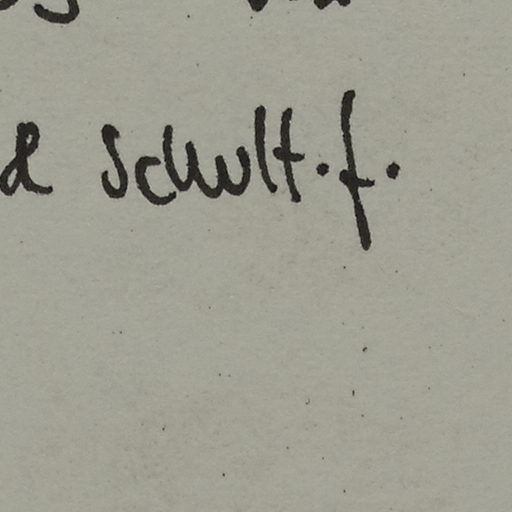 & Schult.f.